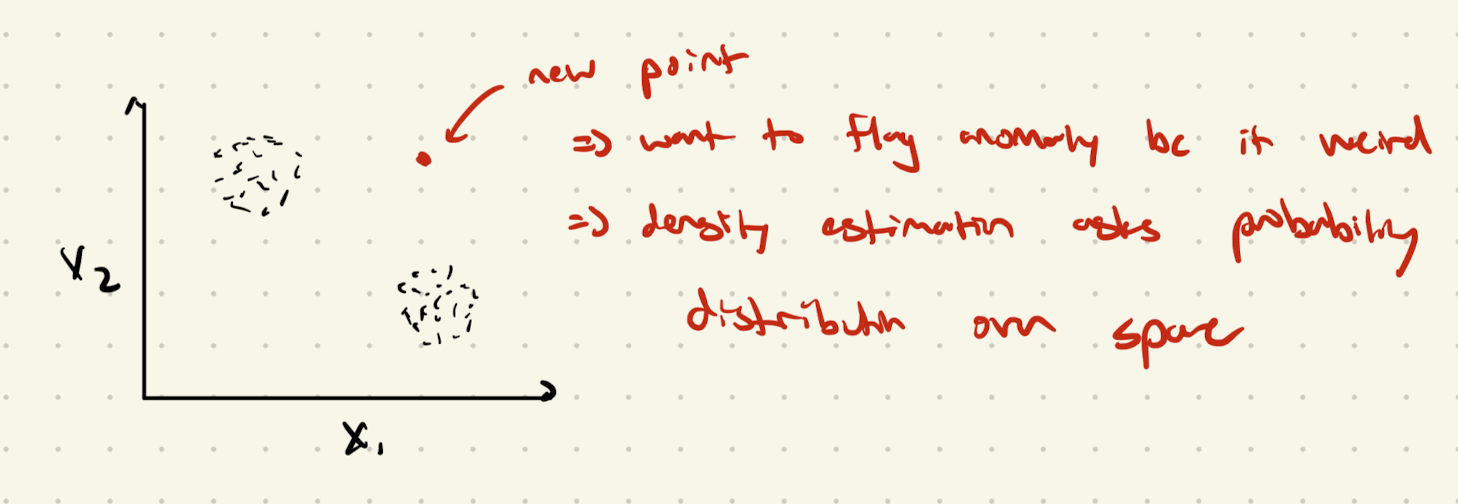 new point
=> want to flag anomaly bc it weird
=> density estimation asks probability
distribution over space
X2
X1